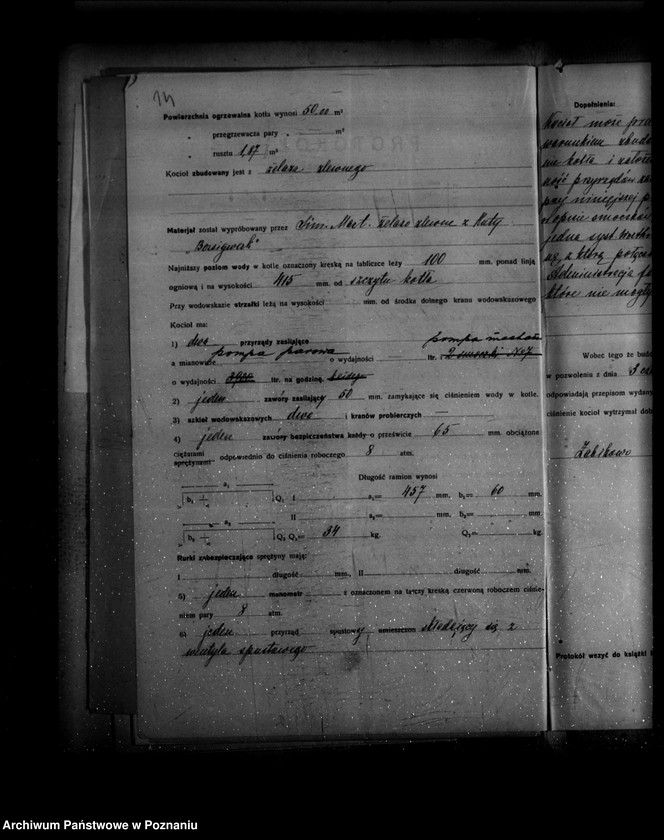 14
Powierzchnia ogrzewalna kotła wynosi 50,00 m²
" przegrzewacza pary " m²
" rusztu 1,87 m²
Kocioł zbudowany jest z żelaza zlewnego
Materjał został wypróbowany przez Mat. żelazo zlewne z Huty
"Borsigwerk"
Najniższy poziom wody w kotle oznaczony kreską na tabliczce leży 100 mm. ponad linją
ogniową i na wysokości 415 mm. od szczytu kotła
Przy wodowskazie strzałki leżą na wysokości mm. od środka dolnego kranu wodowskazowego
Kocioł ma:
1) dwa przyrządy zasilające pompa
a mianowicie pompa parowa o wydajności ltr.
o wydajności ltr. na godzinę.
2) jeden zawory zasilający 50 mm. zamykające się ciśnieniem wody w kotle.
3) szkieł wodowskazowych dwa i kranów probierczych
4) jeden zawory bezpieczeństwa każdy o prześwicie 65 mm. obciążone
ciężarami
sprężynami odpowiednio do ciśnienia roboczego 8 atm.
Długość ramion wynosi
a₁ b₁ Q₁ I a₁= 457 mm. b₁= 60 mm.
II a₂= mm. b₂= mm.
a₂ b₂ Q₂ Q₁= 34 kg. Q₂= kg.
Rurki zabezpieczające sprężyny mają:
I długość mm., II długość mm.
5) jeden manometr z oznaczonem na tarczy kreską czerwoną roboczem ciśnie-
niem pary 8 atm.
6) jeden przyrząd spustowy umieszczono składający się z
wentyla spustowego
Dopełnienia:
Kocioł może
warunkiem
kotła i
ność przyrządów
przy niniejszej
jedna syst.
z którą
Administracja
które nie mogły
Wobec tego że
w pozwoleniu z dnia 3
odpowiadają przepisom
ciśnienie kocioł wytrzymał
Żabikowo
Protokół wszyć do książki
Archiwum Państwowe w Poznaniu